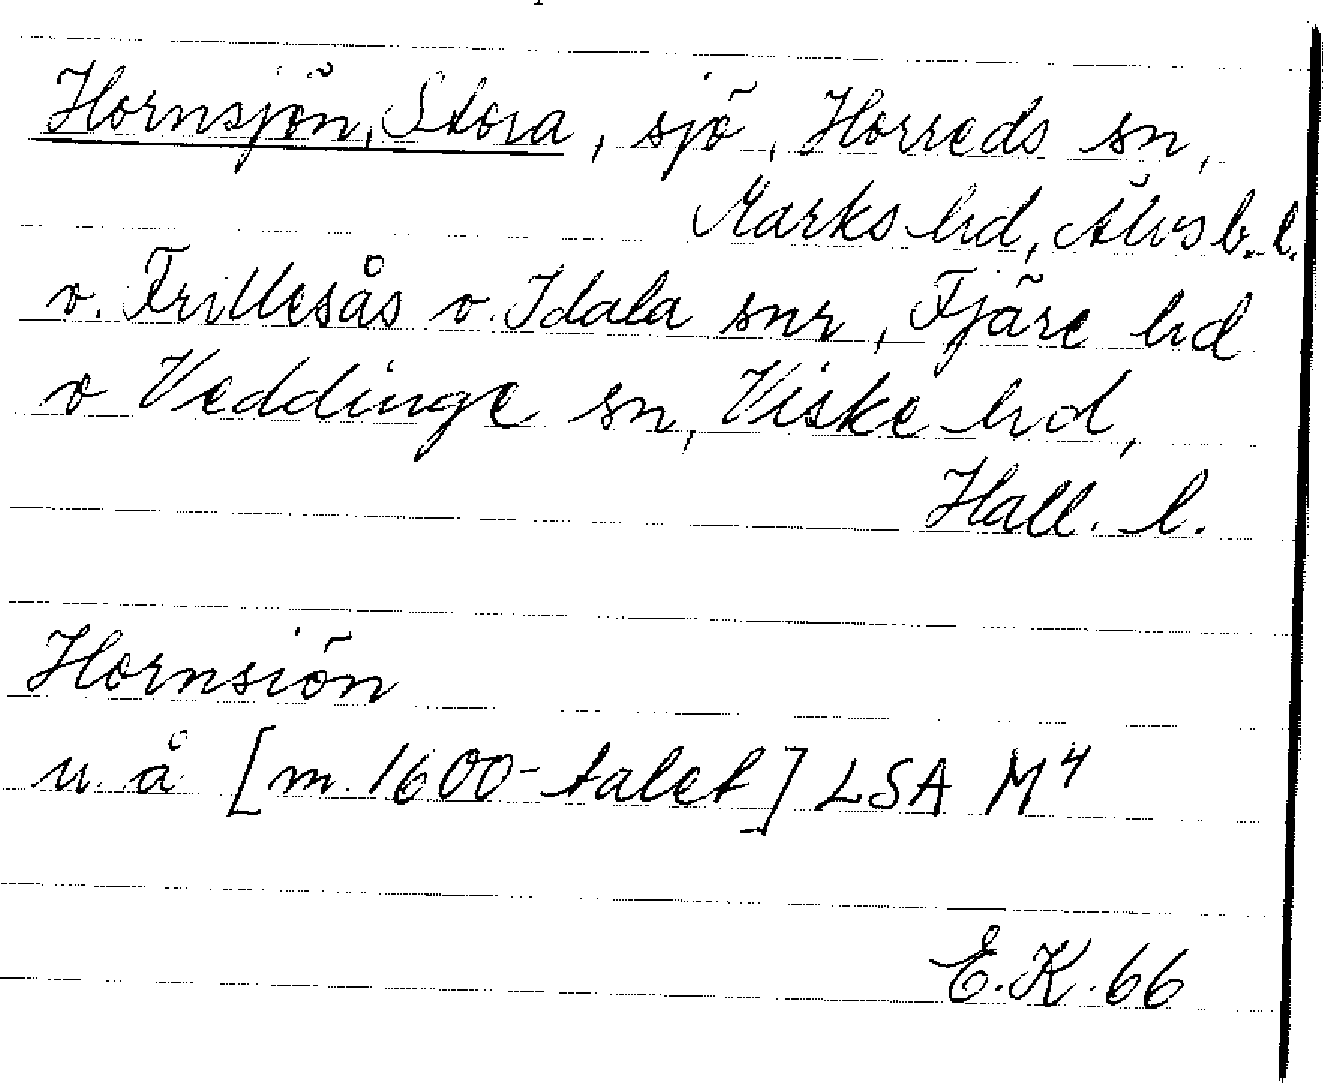 Hornsjön, Stora, sjö, Horreds sn,
Marks hd, Älvsb. l.
o. Frillesås o. Idala snr, Fjäre hd
o Veddinge sn, Viske hd,
Hall. l.
Hornsiön
u. å [m. 1600-talet] LSA M4
E.K. 66